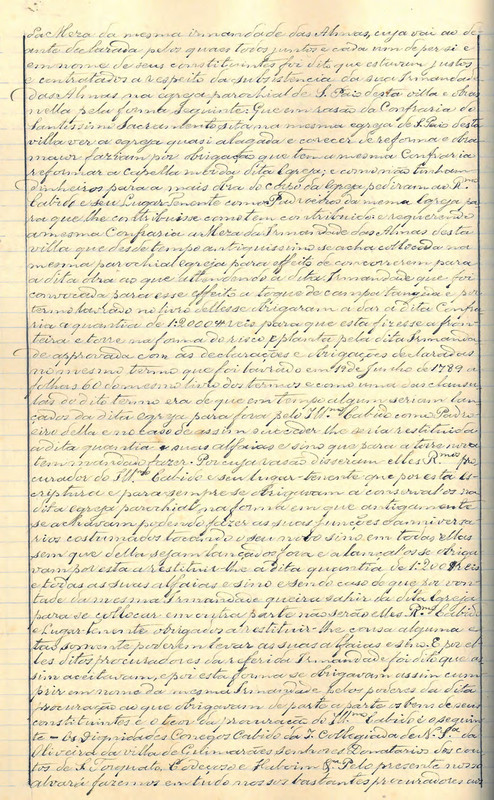 da Meza da mesma irmandade das Almas, cuja vai ao de
ante declarada pelos quaes todos juntos e cada um de per si e
em nome de seus constituintes foi dito que estavam justos
e contratados a respeito da subsistencia da sua Irmandade
das Almas na egreja parochial de S. Paio desta villa e obras
nella pela forma seguinte: Que em rasão da Confraria do
Santissimo Sacramento sita na mesma egreja de S. Paio desta
villa ver a egreja quasi alagada e carecer de reforma e obra
maior faziam por obrigação que tem a mesma Confraria
reformar a Capella mór da dita Egreja; e como não tinham
dinheiros para a mais obra do corpo da Egreja pediram ao R.mo
Cabido e seu Lugar Tenente como Padroeiros da mesma Egreja pa
ra que lhe contribuisse como tem contribuido e requererão
a mesma Confraria a Meza da Irmandade das Almas desta
villa que desde tempo antiquissimo se acha collocada na
mesma parochial Egreja para effeito de concorrerem para
a dita obra ao que attendendo a dita Irmandade que foi
convocada para esse effeito a toque de campa tangida e por
termo lavrado no livro delles se obrigaram a dar á dita Confra
ria a quantia de 1:200$000 reis para que esta fizesse a fron
taria e torre na forma do risco e planta pela dita Irmanda
de approvada com as declarações e obrigações declaradas
no mesmo termo que foi lavrado em 19 de Junho de 1789 a
folhas 60 do mesmo livro dos termos e como uma das clausu
las do dito termo era de que em tempo algum seriam lan
çados da dita egreja para fora pelo Ill.mo Cabido como Padro
eiro della e no caso de assim succeder lhe seria restituida
a dita quantia e suas alfaias e sino que para a torre nova
tem mandado fazer. Por cuja rasão disseram elles R.mos pro
curador do Ill.mo Cabido e seu lugar-tenente que por esta es
criptura e para sempre se obrigavam a conserval-os na
dita Egreja parochial na forma em que antigamente
se achavam podendo fazer as suas funções d'anniversa
rios costumados tocando o seu nobo sino em todas ellas
sem que della sejam lançados fora e a lançal-os se obriga
vam por esta a restituir-lhe a dita quantia de 1:200$ reis
e todas as suas alfaias e sino e sendo caso de que por von
tade da mesma Irmandade queira sahir da dita Egreja
para se collocar em outra parte não serão elles R.mos Cabido
e Lugar-tenente obrigados a restituir-lhe cousa alguma e
tão somente poderem levar as suas alfaias e sino. E por el
les ditos procuradores da referida Irmandade foi dito que as
sim aceitavam, e por esta forma se obrigavam assim cum
prir em nome da mesma Irmandade e pelos poderes da dita
procuração ao que obrigavam de parte a parte os bens de seus
constituintes e o teor da procuração do Ill.mo Cabido é o seguin
te — Os Dignidades Conegos Cabido da I. Collegiada de N. S.ra da
Oliveira da villa de Guimarães senhores Donatarios dos cou
tos de S. Torquato, Codeçoso e Huboim &. Pelo presente nosso
alvará fazemos em tudo nossos bastantes procuradores aos